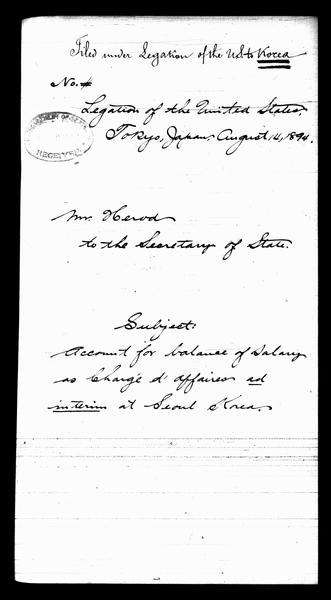 Filed under Legation of the U.S. to Korea
No. #
Legation of the United States.
Tokyo, Japan, August 14, 1894.
DEPARTMENT OF STATE
RECEIVED
Mr. Herod
to the Secretary of State.
Subject:
Account for balance of Salary
as Chargé d'affaires ad
interim at Seoul Korea.